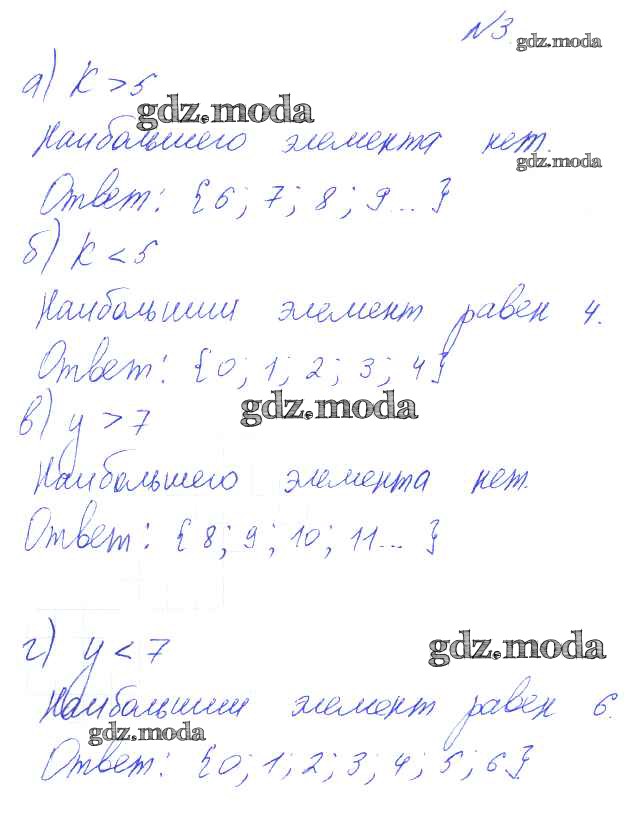 №3
gdz.moda
а) К > 5
gdz.moda
Наибольшего элемента нет.
gdz.moda
Ответ: {6; 7; 8; 9...}
б) К < 5
Наибольший элемент равен 4.
Ответ: {0; 1; 2; 3; 4}
gdz.moda
в) у > 7
Наибольшего элемента нет.
Ответ: {8; 9; 10; 11...}
г) у < 7
gdz.moda
Наибольший элемент равен 6.
gdz.moda
Ответ: {0; 1; 2; 3; 4; 5; 6}